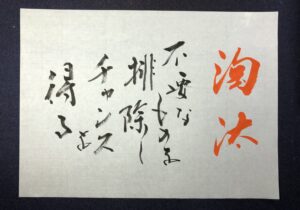 淘汰
不要な
ものを
排除し
チャンスを
得る